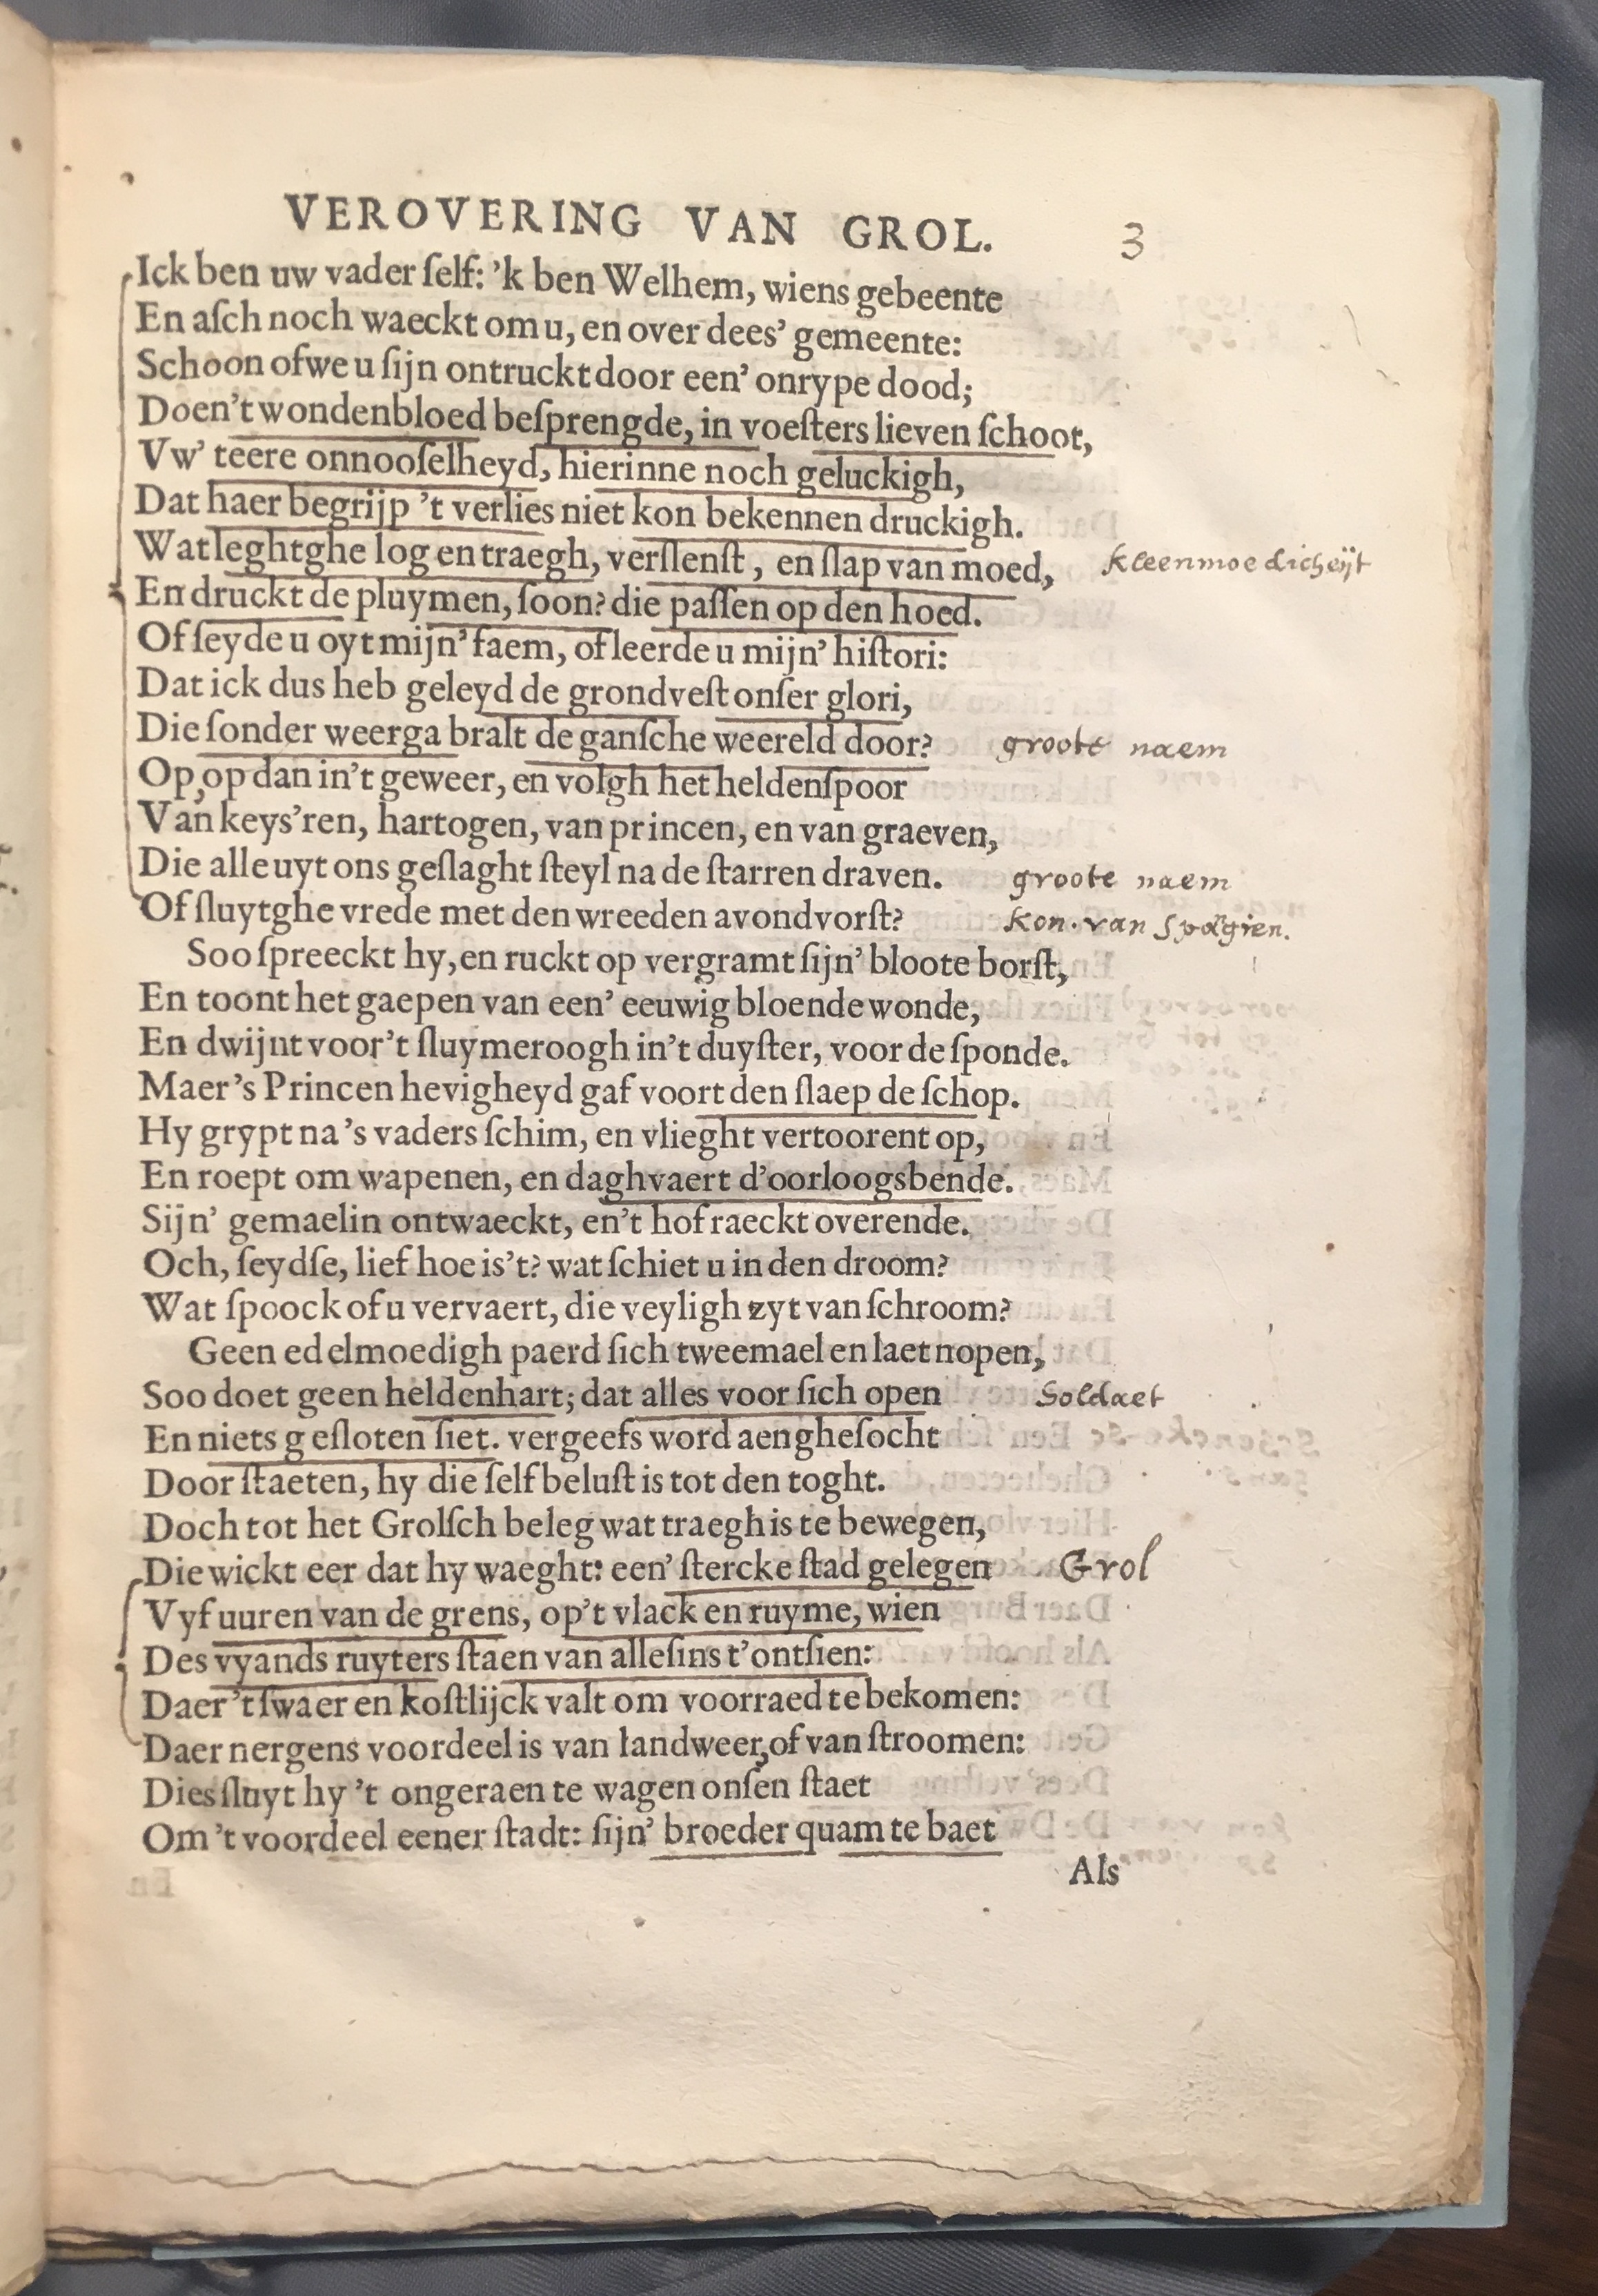 VEROVERING VAN GROL. 3
Ick ben uw vader ſelf: ’k ben Welhem, wiens gebeente
En aſch noch waeckt om u, en over dees’ gemeente:
Schoon of we u ſijn ontruckt door een’ onrype dood;
Doen’t wondenbloed beſprengde, in voeſters lieven ſchoot,
Vw’ teere onnooſelheyd, hierinne noch geluckigh,
Dat haer begrijp ’t verlies niet kon bekennen druckigh.
Wat leght ghe log en traegh, verſlenſt, en ſlap van moed, kleenmoedicheijt
En druckt de pluymen, ſoon? die paſſen op den hoed.
Of ſeyde u oyt mijn’ faem, of leerde u mijn’ hiſtori:
Dat ick dus heb geleyd de grondveſt onſer glori,
Die ſonder weerga bralt de ganſche weereld door? groote naem
Op, op dan in’t geweer, en volgh het heldenſpoor
Van keys’ren, hartogen, van princen, en van graeven,
Die alle uyt ons geſlaght ſteyl na de ſtarren draven. groote naem
Of ſluyt ghe vrede met den wreeden avondvorſt? kon. van Spagien.
Soo ſpreeckt hy, en ruckt op vergramt ſijn’ bloote borſt,
En toont het gaepen van een’ eeuwig bloende wonde,
En dwijnt voor’t ſluymeroogh in’t duyſter, voor de ſponde.
Maer ’s Princen hevigheyd gaf voort den ſlaep de ſchop.
Hy grypt na ’s vaders ſchim, en vlieght vertoorent op,
En roept om wapenen, en daghvaert d’oorloogsbende.
Sijn’ gemaelin ontwaeckt, en’t hof raeckt overende.
Och, ſeydſe, lief hoe is’t? wat ſchiet u in den droom?
Wat ſpoock of u vervaert, die veyligh zyt van ſchroom?
Geen edelmoedigh paerd ſich tweemael en laet nopen,
Soo doet geen heldenhart; dat alles voor ſich open Soldaet
En niets geſloten ſiet. vergeefs word aengheſocht
Door ſtaeten, hy die ſelf beluſt is tot den toght.
Doch tot het Grolſch beleg wat traegh is te bewegen,
Die wickt eer dat hy waeght: een’ ſtercke ſtad gelegen Grol
Vyf uuren van de grens, op’t vlack en ruyme, wien
Des vyands ruyters ſtaen van alleſins t’ontſien:
Daer ’t ſwaer en koſtlijck valt om voorraed te bekomen:
Daer nergens voordeel is van landweer, of van ſtroomen:
Dies ſluyt hy ’t ongeraen te wagen onſen ſtaet
Om ’t voordeel eener ſtadt: ſijn’ broeder quam te baet
Als